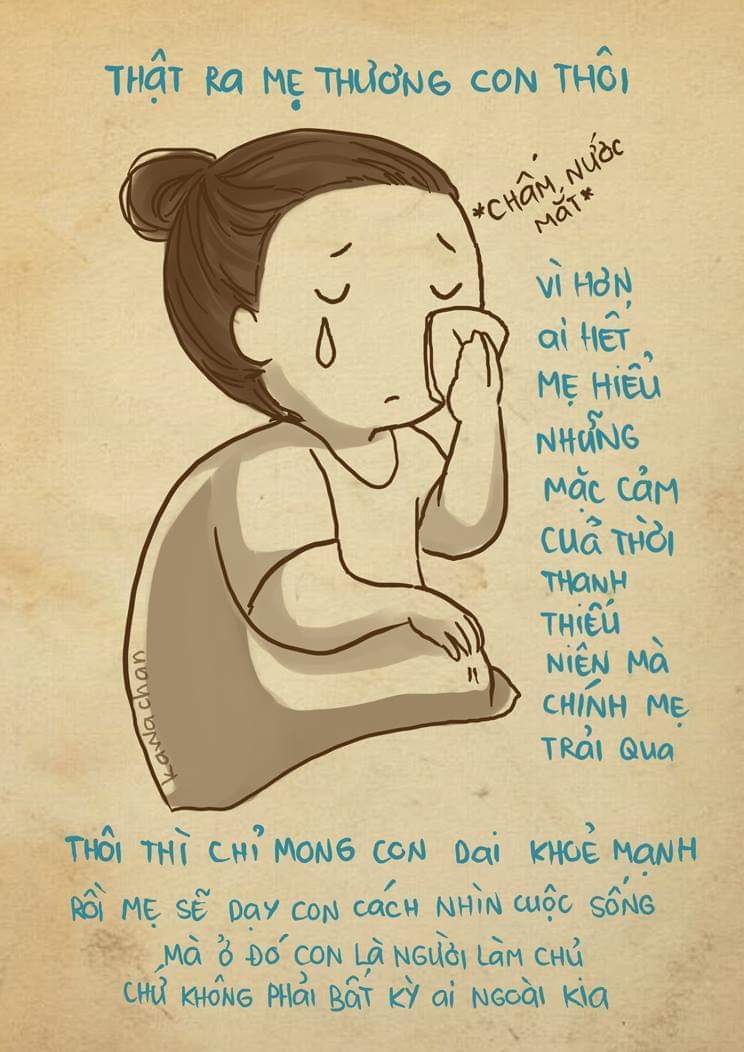 THẬT RA MẸ THƯƠNG CON THÔI
*CHẤM NƯỚC
MẮT*
VÌ HƠN
AI HẾT
MẸ HIỂU
NHỮNG
MẶC CẢM
CUẢ THỜI
THANH
THIẾU
NIÊN MÀ
CHÍNH MẸ
TRẢI QUA
kawachan
THÔI THÌ CHỈ MONG CON DAI KHOẺ MẠNH
RỒI MẸ SẼ DẠY CON CÁCH NHÌN CUỘC SỐNG
MÀ Ở ĐÓ CON LÀ NGƯỜI LÀM CHỦ
CHỨ KHÔNG PHẢI BẤT KỲ AI NGOÀI KIA